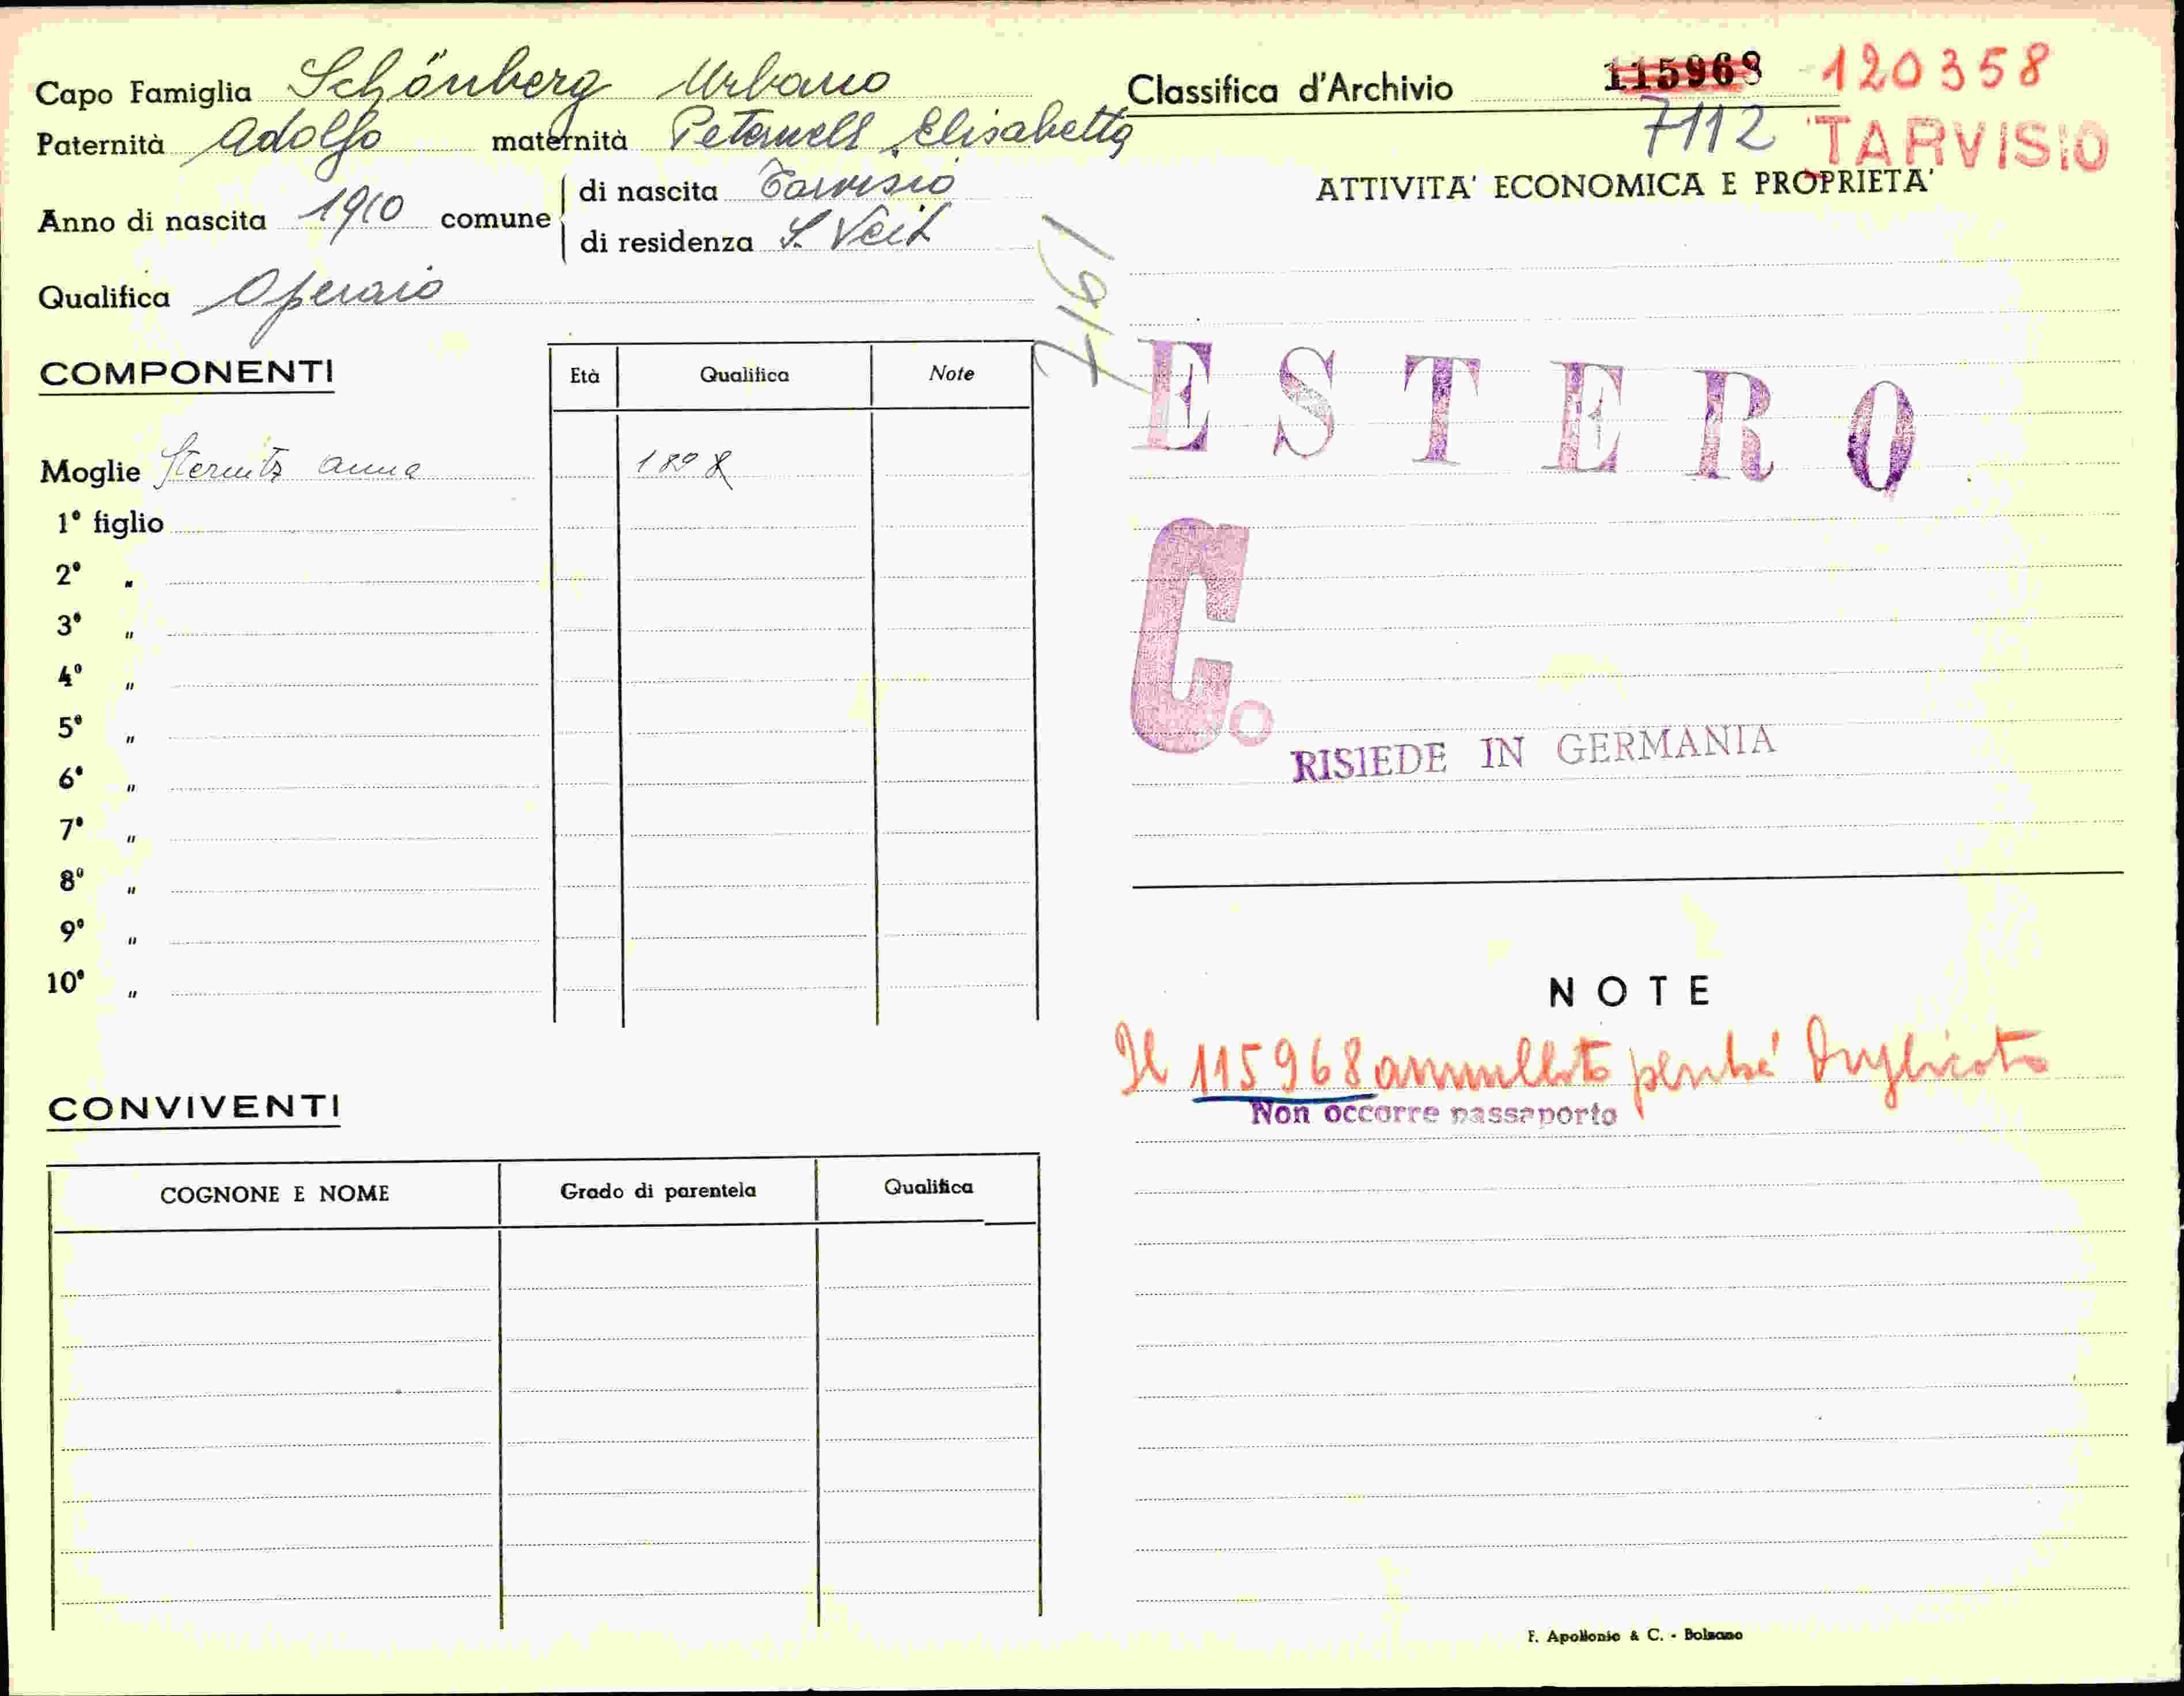 Capo Famiglia Schönberg Urbano
Paternità Adolfo maternità Peternell Elisabetta
Anno di nascita 1910 comune di nascita Tarvisio
di residenza S. Veit
Qualifica Operaio
COMPONENTI
Età Qualifica Note
Moglie Sternitz Anna 1898
1° figlio
2° "
3° "
4° "
5° "
6° "
7° "
8° "
9° "
10° "
CONVIVENTI
COGNONE E NOME Grado di parentela Qualifica
Classifica d'Archivio 115968 120358
7112 TARVISIO
ATTIVITA' ECONOMICA E PROPRIETA'
ESTERO
C.
RISIEDE IN GERMANIA
NOTE
Il 115968 annullato perché duplicato
Non occorre passaporto
F. Apollonio & C. - Bolzano